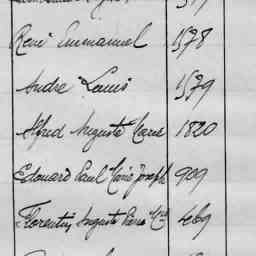 René Emmanuel 1578
André Louis 1579
Alfred Auguste Marie 1820
Edouard Paul Marie Joseph 909
Florentin Auguste Pierre Mie 469